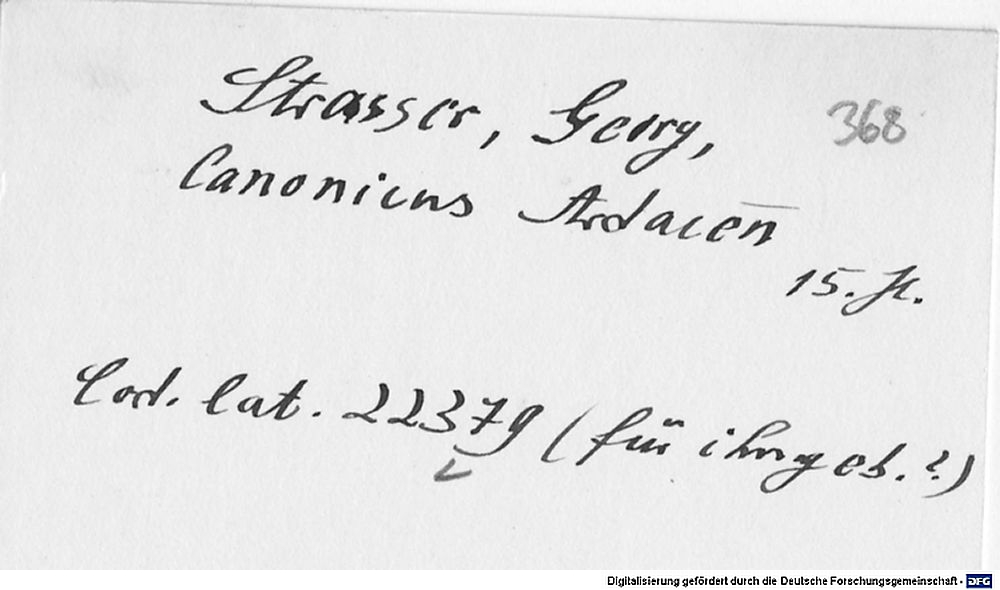 Strasser, Georg, 368
Canonicus Ardacen̄
15. Jh.
Cod. lat. 22379 (für ihn geb.?)
Digitalisierung gefördert durch die Deutsche Forschungsgemeinschaft - DFG